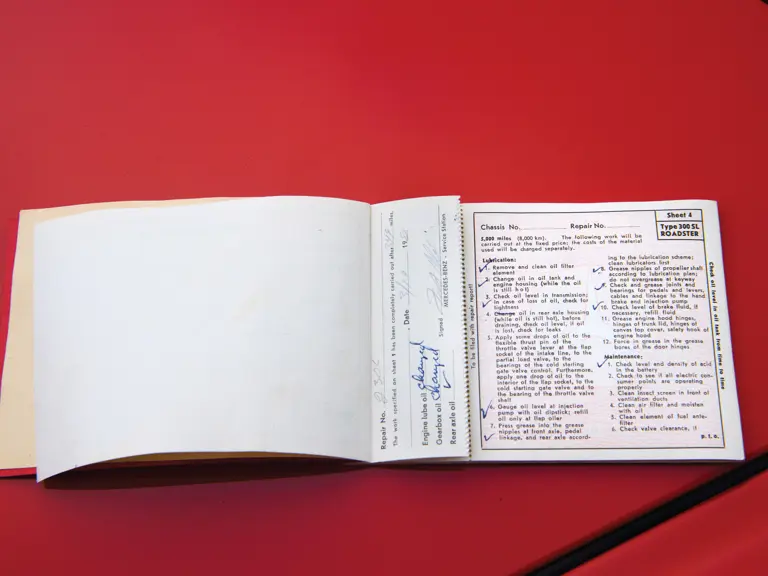 Repair No.
The work specified on sheet 4 has been completely carried out after miles.
Date 19
Signed
MERCEDES-BENZ - Service Station
Engine lube oil changed
Gearbox oil changed
Rear axle oil
To be filed with repair report!
Sheet 4
Type 300 SL
ROADSTER
Chassis No. Repair No.
5,000 miles (8,000 km). The following work will be
carried out at the fixed price; the costs of the material
used will be charged separately.
Lubrication:
1. Remove and clean oil filter
element
2. Change oil in oil tank and
engine housing (while the oil
is still hot)
3. Check oil level in transmission;
in case of loss of oil, check for
tightness
4. Change oil in rear axle housing
(while oil is still hot), before
draining, check oil level, if oil
is lost, check for leaks
5. Apply some drops of oil to the
flexible thrust pin of the
throttle valve lever at the flap
socket of the intake line, to the
partial load valve, to the
bearings of the cold starting
gate valve control. Furthermore,
apply one drop of oil to the
interior of the flap socket, to the
cold starting gate valve and to
the bearing of the throttle valve
shell
6. Gauge oil level at injection
pump with oil dipstick; refill
oil only at flap oiler
7. Press grease into the grease
nipples at front axle, pedal
linkage, and rear axle accord-
ing to the lubrication scheme;
clean lubricators first
8. Grease nipples of propeller shaft
according to lubrication plan;
do not overgrease at keyway
9. Check and grease joints and
bearings for pedals and levers,
cables and linkage to the hand
brake and injection pump
10. Check level of brake fluid, if
necessary, refill fluid
11. Grease engine hood hinges,
hinges of trunk lid, hinges of
canvas top cover, safety hook of
engine hood
12. Force in grease in the grease
bores of the door hinges
Maintenance:
1. Check level and density of acid
in the battery
2. Check to see if all electric con-
sumer points are operating
properly
3. Clean insect screen in front of
ventilation ducts
4. Clean air filter and moisten
with oil
5. Clean element of fuel ante-
filter
6. Check valve clearance, if
p. t. o.
Check oil level in oil tank from time to time